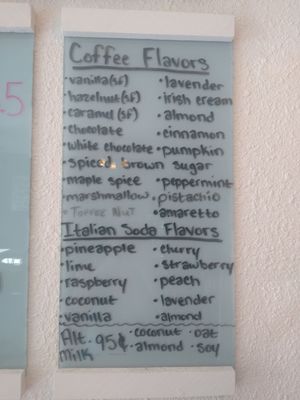 5
Coffee Flavors
• vanilla (sf) • lavender
• hazelnut (sf) • irish cream
• caramel (sf) • almond
• chocolate • cinnamon
• white chocolate • pumpkin
• spiced brown sugar
• maple spice • peppermint
• marshmallow • pistachio
• Toffee Nut • amaretto
Italian Soda Flavors
• pineapple • cherry
• lime • strawberry
• raspberry • peach
• coconut • lavender
• vanilla • almond
Alt. 95¢ • coconut • oat
Milk • almond • soy